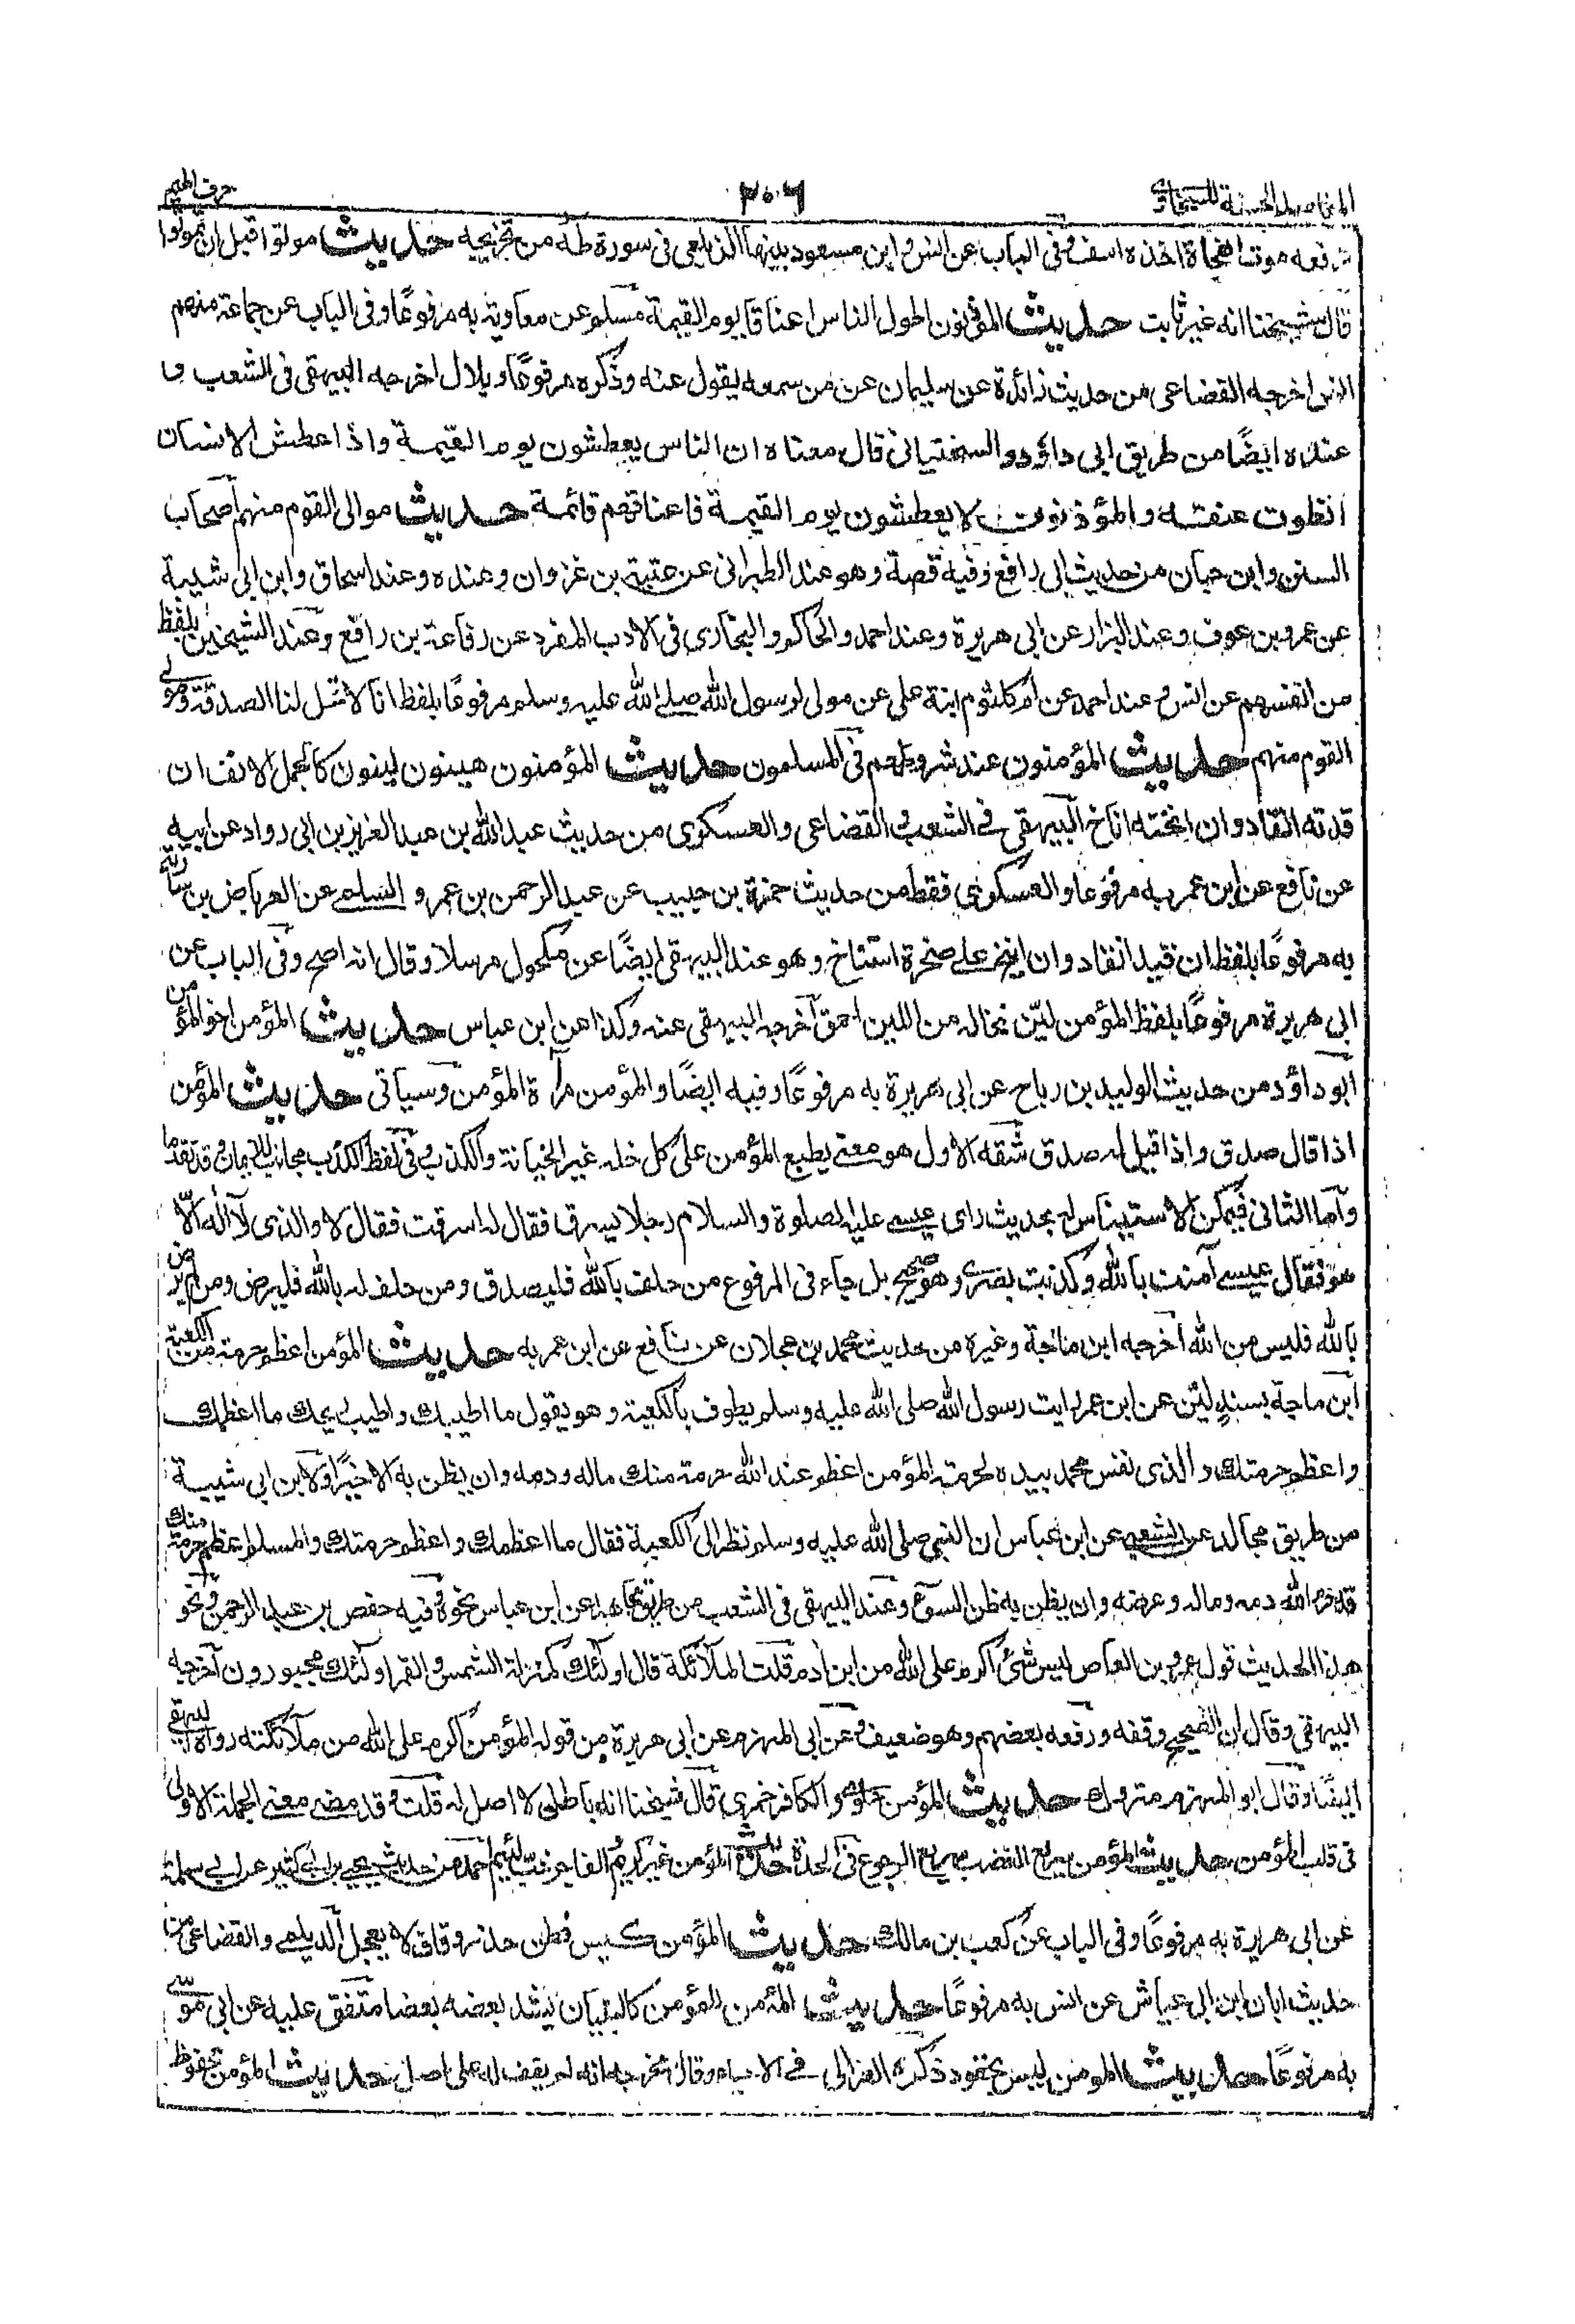 المقاصد الحسنة للسخاوي
٢٠٦
حرف الميم
رفعه موت الفجاة اخذة اسف وفى الباب عن انس وابن مسعود بينها الزيلعى فى سورة طه من تخريجه حديث موتوا قبل ان تموتوا
قال شيخنا انه غير ثابت حديث المؤذنون اطول الناس اعناقا يوم القيمة مسلم عن معاوية به مرفوعًا وفى الباب عن جماعة منهم
انس اخرجه القضاعى من حديث زائدة عن سليمان عن من سمعه يقول عنه وذكره مرفوعًا وبلال اخرجه البيهقى فى الشعب و
عنده ايضًا من طريق ابى داؤد والسختيانى قال معناه ان الناس يعطشون يوم القيمة واذا عطش الانسان
انطوت عنقه والمؤذنون لا يعطشون يوم القيمة فاعناقهم قائمة حديث موالى القوم منهم اصحاب
السنن وابن حبان من حديث ابى رافع وفيه قصة وهو عند الطبرانى عن عتبة بن غزوان وعنده وعند اسحاق وابن ابى شيبة
عن عمرو بن عوف وعند البزار عن ابى هريرة وعند احمد والحاكم والبخارى فى الادب المفرد عن رفاعة بن رافع وعند الشيخين بلفظ
من انفسهم عن انس وعند احمد عن ام كلثوم ابنة على عن مولى لرسول الله صلى الله عليه وسلم مرفوعًا بلفظ انا لا تحل لنا الصدقة ومولى
القوم منهم حديث المؤمنون عند شروطهم فى المسلمون حديث المؤمنون هينون لينون كالجمل الانف ان
قدته انقاد وان انخته اناخ البيهقى فى الشعب والقضاعى والعسكرى من حديث عبد الله بن عبد العزيز بن ابى رواد عن ابيه
عن نافع عن ابن عمر به مرفوعا والعسكرى فقط من حديث حمزة بن حبيب عن عبد الرحمن بن عمرو السلمى عن العرباض بن سارية
به مرفوعًا بلفظ ان قيد انقاد وان انيخ على صخرة استناخ وهو عند البيهقى ايضًا عن مكحول مرسلا وقال انه اصح وفى الباب عن
ابى هريرة مرفوعًا بلفظ المؤمن ليّن تخاله من اللين احمق اخرجه البيهقى عنه وكذا عن ابن عباس حديث المؤمن اخو المؤمن
ابو داؤد من حديث الوليد بن رباح عن ابى هريرة به مرفوعًا وفيه ايضًا والمؤمن مرآة المؤمن وسياتى حديث المؤمن
اذا قال صدق واذا قيل له صدق شقه الاول هو معنى يطبع المؤمن على كل خلة غير الخيانة والكذب وفى لفظ الكذب مجانب للايمان وقد تقدما
واما الثانى فيمكن الاستيناس له بحديث راى عيسى عليه الصلوة والسلام رجلا يسرق فقال له اسرقت فقال لا والذى لا اله الا
هو فقال عيسى آمنت بالله وكذبت بصرى وهو صحيح بل جاء فى المرفوع من حلف بالله فليصدق ومن حلف له بالله فليرض ومن لم يرض
بالله فليس من الله اخرجه ابن ماجة وغيره من حديث محمد بن عجلان عن نافع عن ابن عمر به حديث المؤمن اعظم حرمة من الكعبة
ابن ماجة بسند ليّن عن ابن عمر رايت رسول الله صلى الله عليه وسلم يطوف بالكعبة وهو يقول ما اطيبك واطيب ريحك ما اعظمك
واعظم حرمتك والذى نفس محمد بيده لحرمة المؤمن اعظم عند الله حرمة منك ماله ودمه وان يظن به الا خيرًا ولابن ابى شيبة
من طريق مجالد عن الشعبى عن ابن عباس ان النبى صلى الله عليه وسلم نظر الى الكعبة فقال ما اعظمك واعظم حرمتك والمسلم اعظم حرمة منك
قد حرم الله دمه وماله وعرضه وان يظن به ظن السوء وعند البيهقى فى الشعب من طريق مجاهد عن ابن عباس نحوه وفيه حفص بن عبد الرحمن ونحو
هذا الحديث قول عمرو بن العاص ليس شئ اكرم على الله من ابن ادم قلت الملائكة قال اولئك بمنزلة الشمس والقمر اولئك مجبورون اخرجه
البيهقى وقال ان الصحيح وقفه ورفعه بعضهم وهو ضعيف وعن ابى المهزم عن ابى هريرة من قوله المؤمن اكرم على الله من ملائكته رواه البيهقى
ايضًا وقال ابو المهزم متروك حديث المؤمن حلوى والكافر خمرى قال شيخنا انه باطل لا اصل له قلت وقد مضى معنى الجملة الاولى
فى قلب المؤمن حديث المؤمن سريع الغضب سريع الرجوع فى الحدة حديث المؤمن غر كريم والفاجر خب لئيم احمد من حديث يحيى بن ابى كثير عن ابى سلمة
عن ابى هريرة به مرفوعًا وفى الباب عن كعب بن مالك حديث المؤمن كيس فطن حذر وقاف لا يعجل الديلمى والقضاعى من
حديث ابان ابن ابى عياش عن انس به مرفوعًا حديث المؤمن للمؤمن كالبنيان يشد بعضه بعضا متفق عليه عن ابى موسى
به مرفوعًا حديث المومن ليس بحقود ذكره الغزالى فى الاحياء وقال مخرجه انه لم يقف له على اصل حديث المؤمن محفوظ